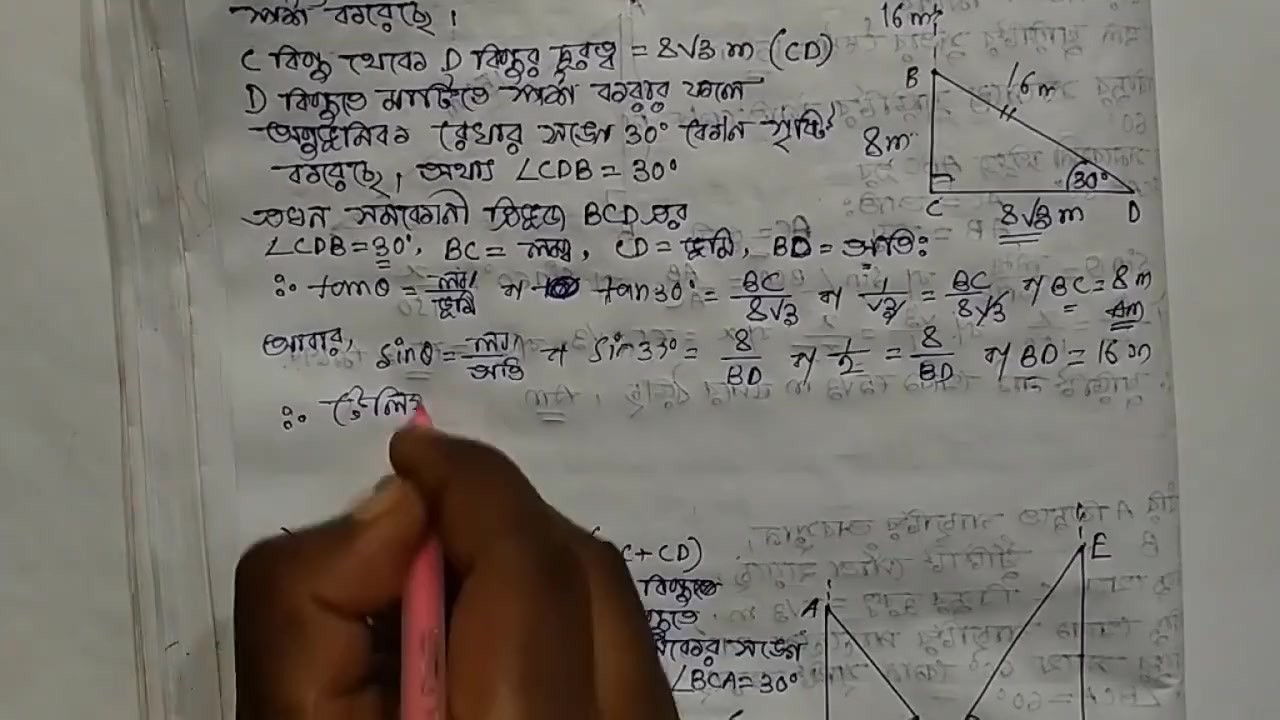 স্পর্শ করেছে।
C বিন্দু থেকে D বিন্দুর দূরত্ব = 8√3 m (CD)
D বিন্দুতে মাটিতে স্পর্শ করার ফলে
অনুভূমিক রেখার সঙ্গে 30° কোন সৃষ্টি
করেছে, অর্থাৎ ∠CDB = 30°
এখন সমকোনী ত্রিভুজ BCD এর
∠CDB = 30°, BC = লম্ব, CD = ভূমি, BD = অতিঃ
∴ tanθ = লম্ব/ভূমি বা tan30° = BC/8√3 বা 1/√3 = BC/8√3 বা BC = 8m
Am
আবার, sinθ = লম্ব/অতি বা sin30° = 8/BD বা 1/2 = 8/BD বা BD = 16 m
∴ টেলি
16 m
B
16 m
8m
30°
C
8√3 m
D
C + CD)
বিন্দুতে
সঙ্গে
∠BCA = 30°
A
E